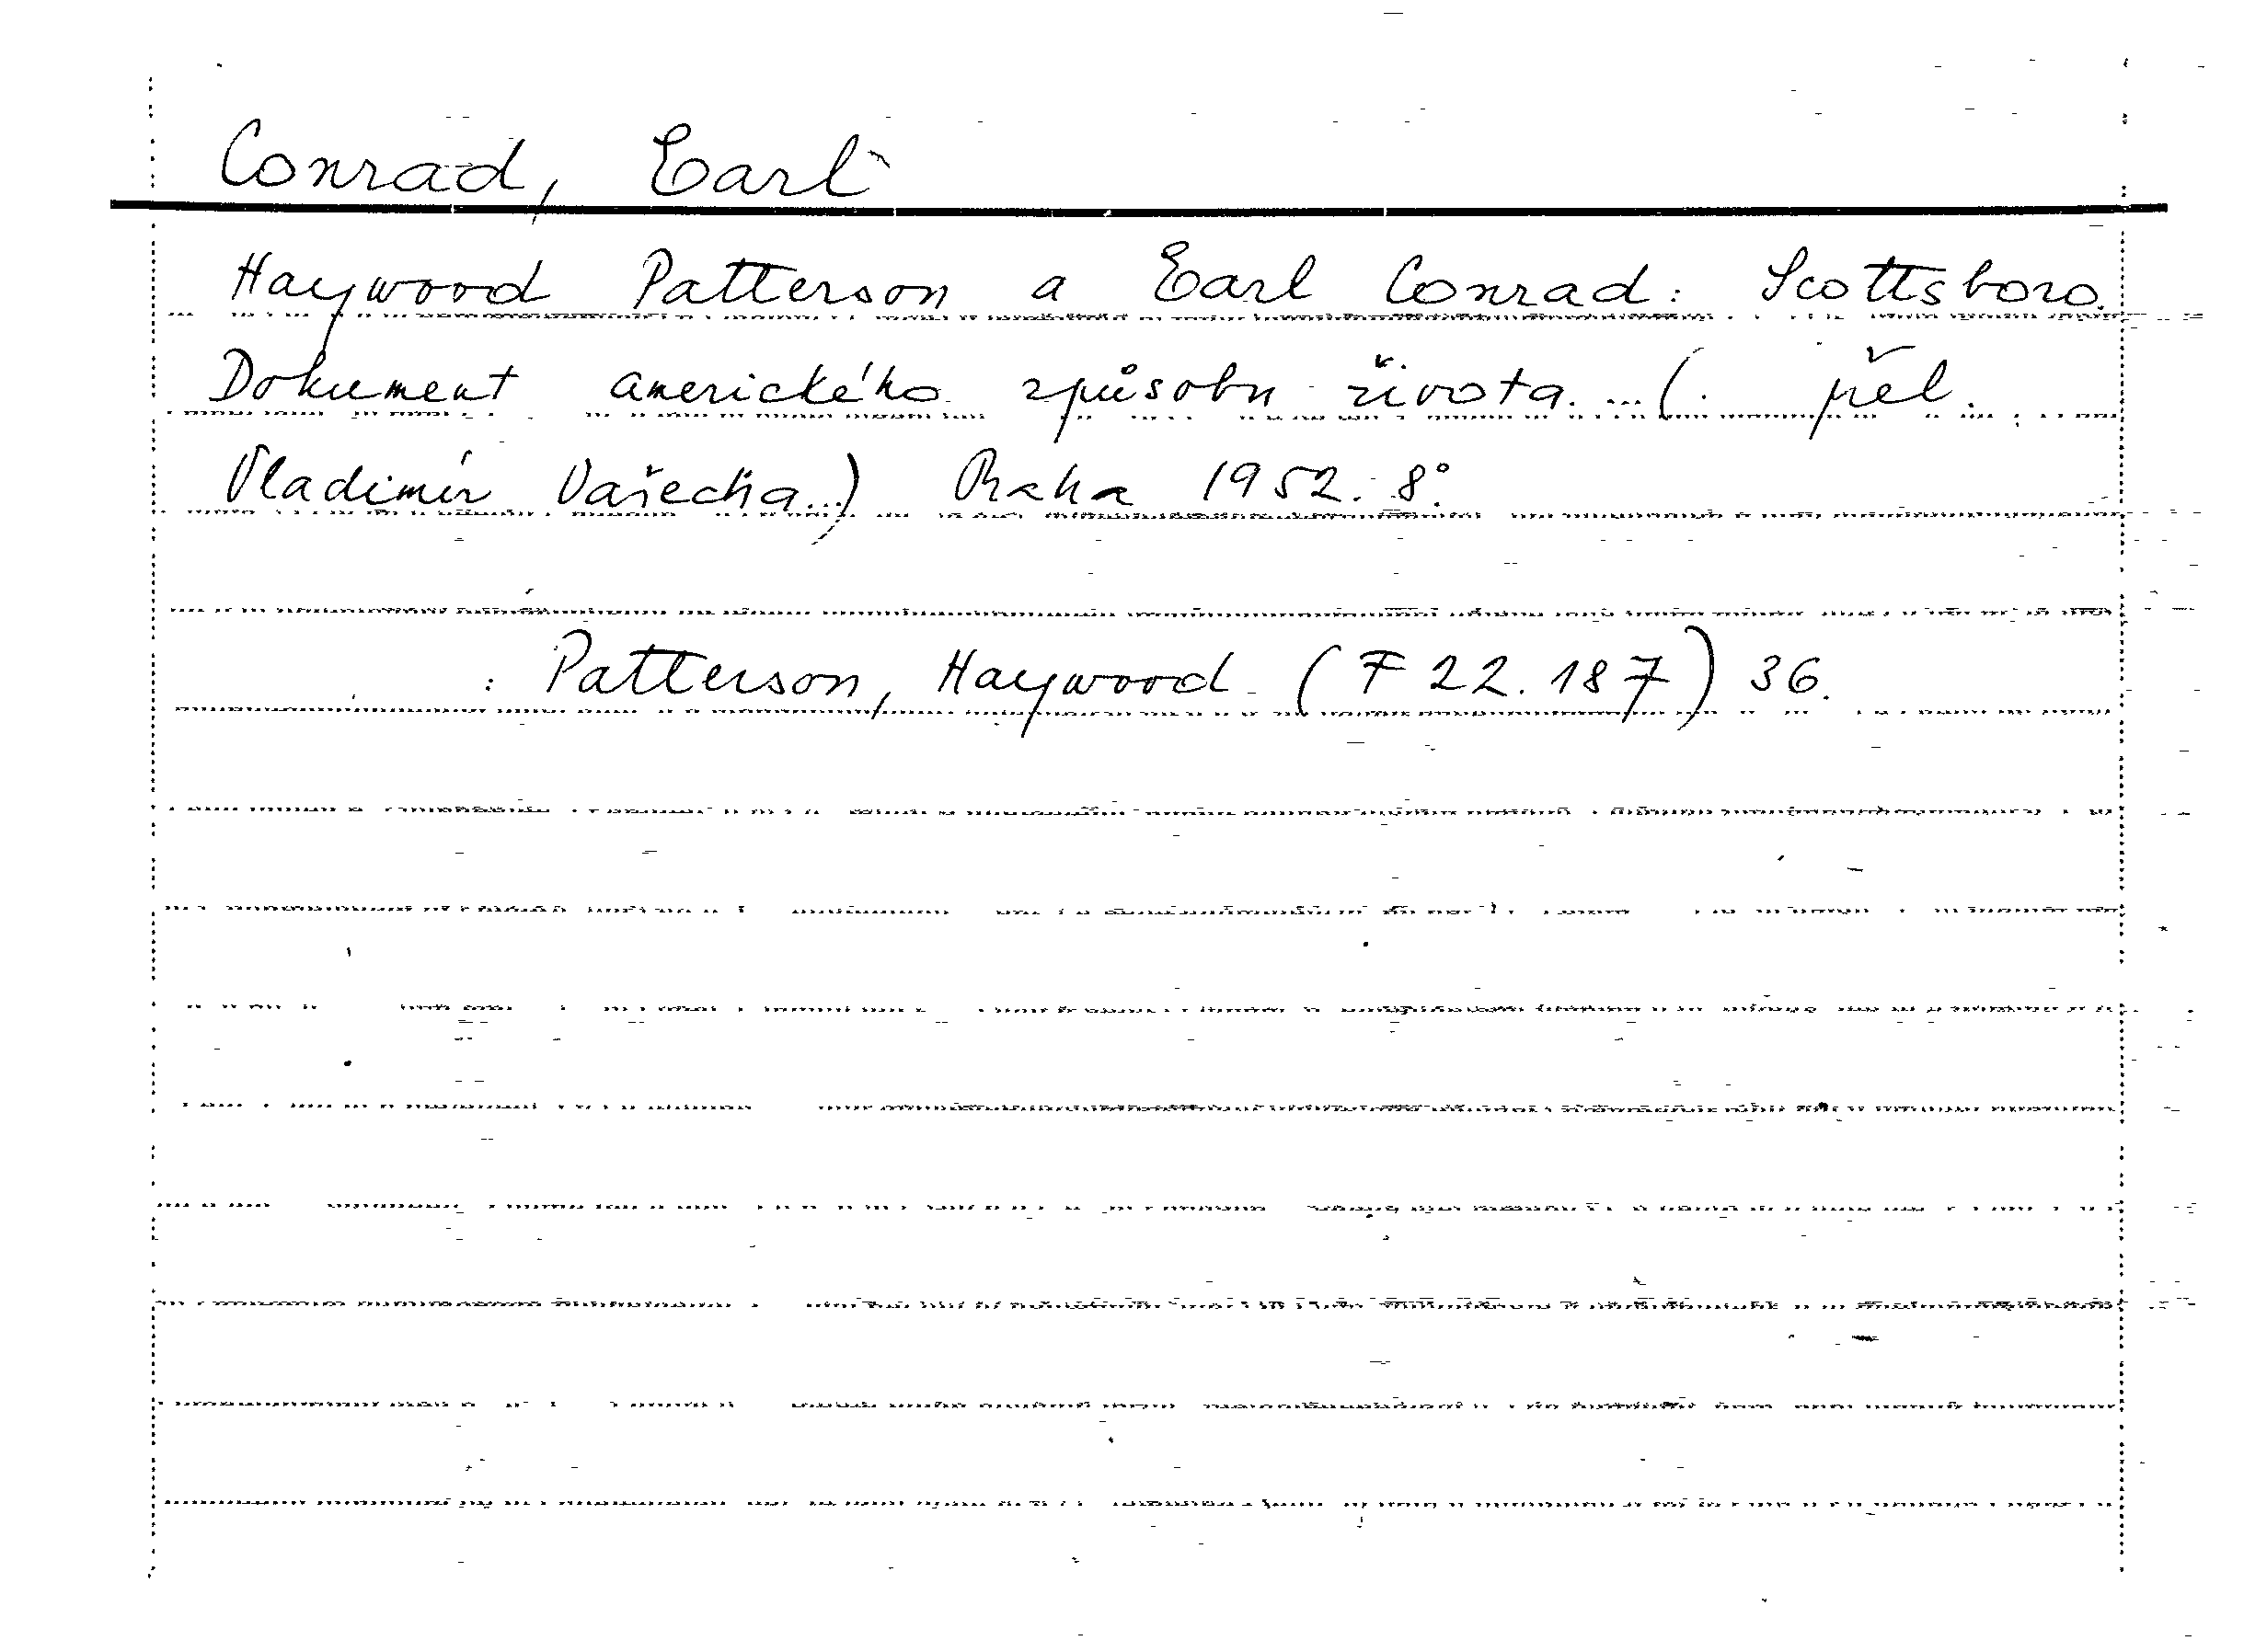 Conrad, Earl
Haywood Patterson a Earl Conrad: Scottsboro.
Dokument amerického způsobu života. ... (. přel.
Vladimír Vařecha..) Praha 1952. 8°.
: Patterson, Haywood. (F 22.187) 36.